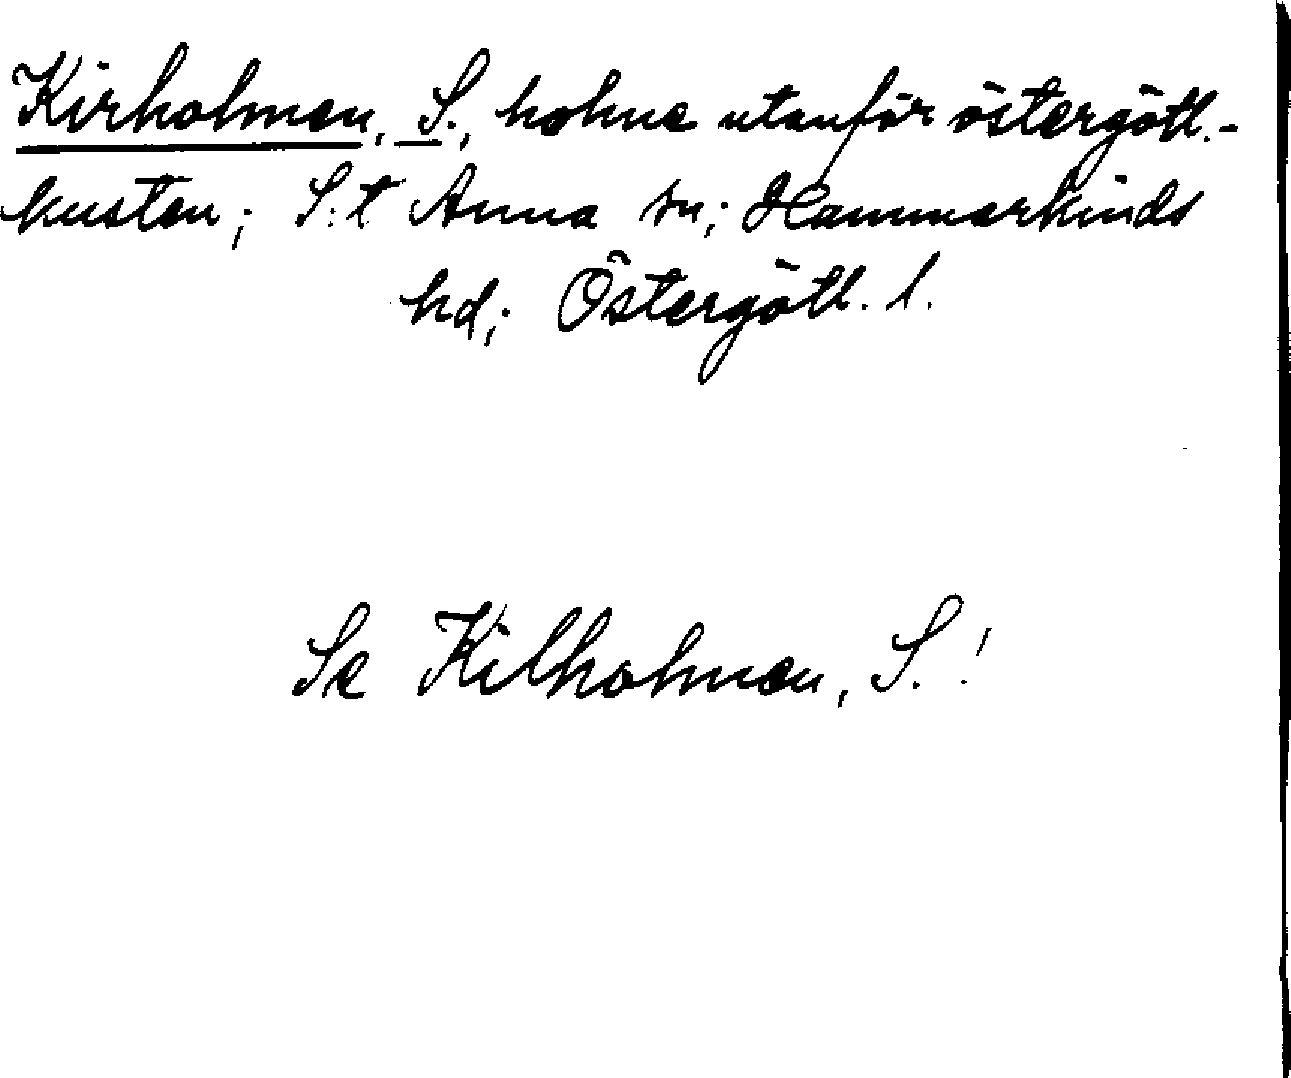 Kirholmen, S., holme utanför östergötl.-
kusten; S:t Anna sn; Hammarkinds
hd; Östergötl. l.
Se Kilholmen, S.!